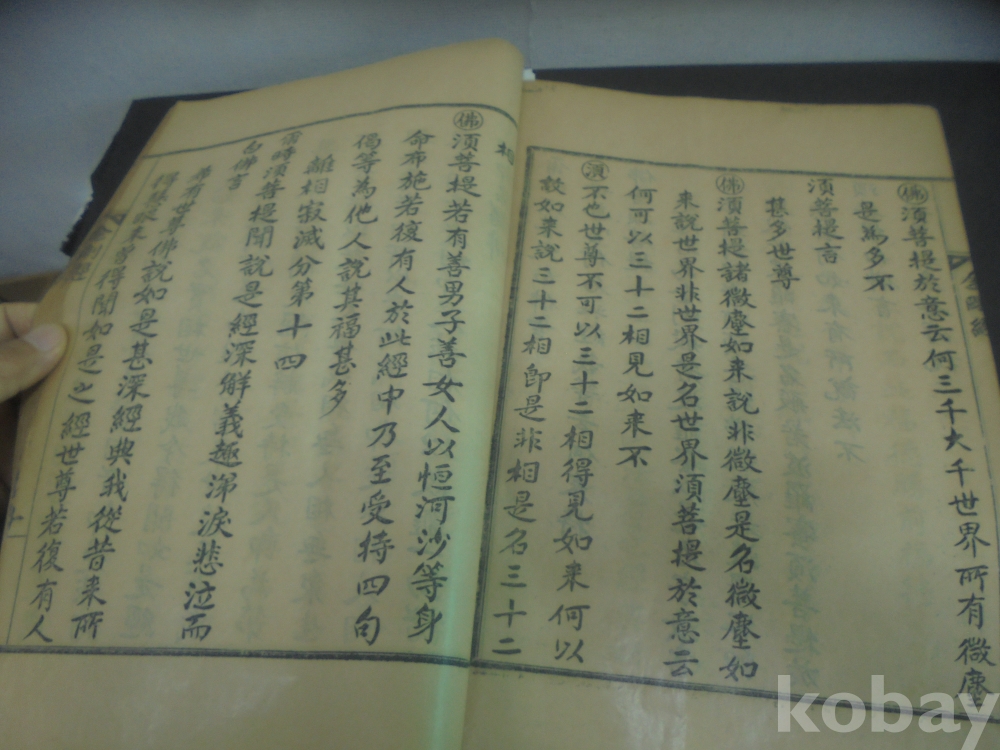 佛 須菩提於意云何三千大千世界所有微塵
是為多不
須菩提言
甚多世尊
佛 須菩提諸微塵如来說非微塵是名微塵如
来說世界非世界是名世界須菩提於意云
何可以三十二相見如来不
須 不也世尊不可以三十二相得見如来何以
故如来說三十二相即是非相是名三十二
相
佛 須菩提若有善男子善女人以恒河沙等身
命布施若復有人於此經中乃至受持四句
偈等為他人說其福甚多
離相寂滅分第十四
爾時須菩提聞說是經深解義趣涕淚悲泣而
白佛言
希有世尊佛說如是甚深經典我從昔来所
得慧眼未曾得聞如是之經世尊若復有人
kobay